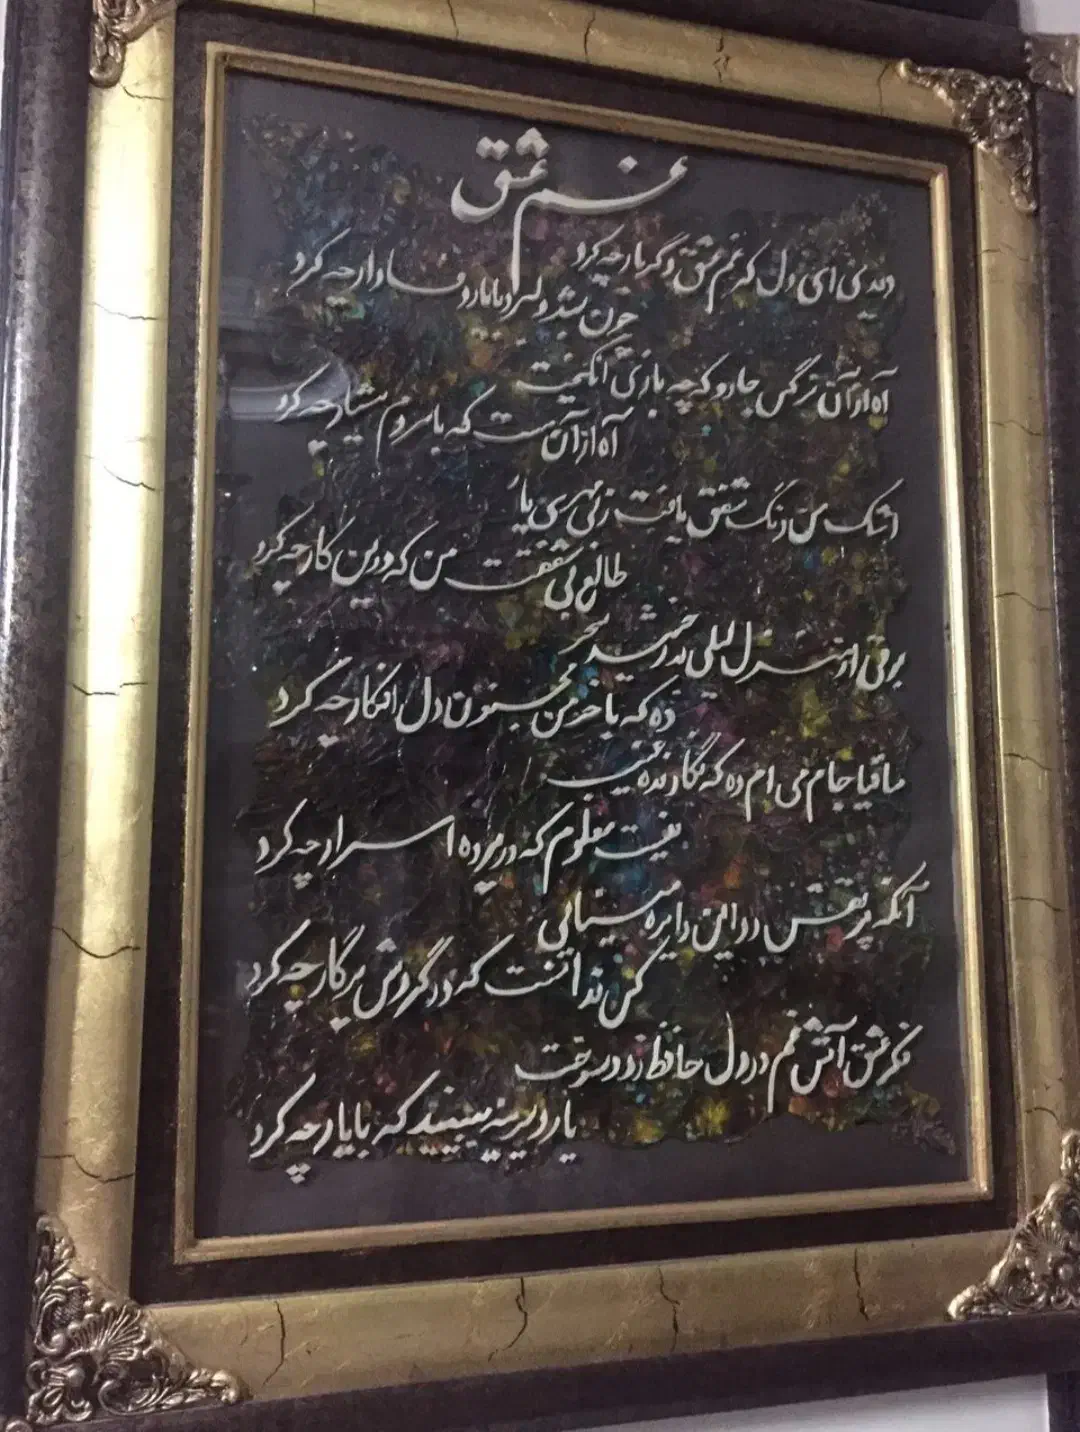 غم عشق
دیدی ای دل که غم عشق دگر بار چه کرد
چون بشد دلبر و با یار وفادار چه کرد
آه از آن نرگس جادو که چه بازی انگیخت
آه از آن مست که با مردم هشیار چه کرد
اشک من رنگ شفق یافت ز بی مهری یار
طالع بی شفقت من که درین کار چه کرد
برقی از منزل لیلی بدرخشید سحر
وه که با خرمن مجنون دل افکار چه کرد
ساقیا جام می ام ده که نگارنده غیب
نیست معلوم که در پرده اسرار چه کرد
آنکه پر نقش زد این دایره مینایی
کس ندانست که در گردش پرگار چه کرد
فکر عشق آتش غم در دل حافظ زد و سوخت
یار دیرینه ببینید که با یار چه کرد